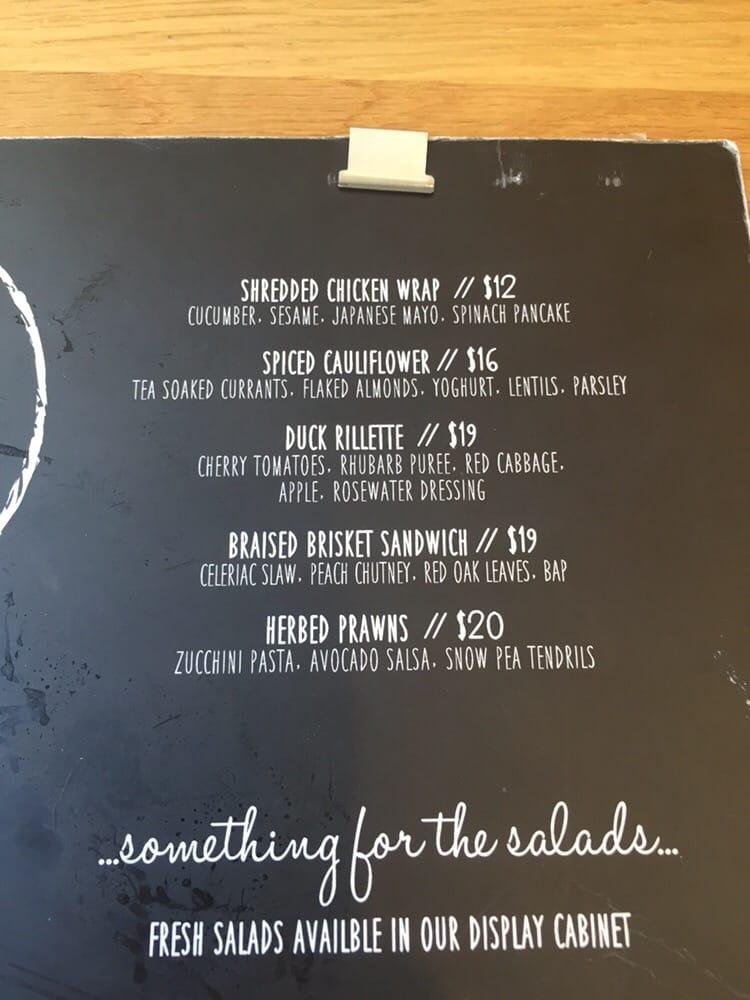 SHREDDED CHICKEN WRAP // $12
CUCUMBER, SESAME, JAPANESE MAYO, SPINACH PANCAKE
SPICED CAULIFLOWER // $16
TEA SOAKED CURRANTS, FLAKED ALMONDS, YOGHURT, LENTILS, PARSLEY
DUCK RILLETTE // $19
CHERRY TOMATOES, RHUBARB PUREE, RED CABBAGE,
APPLE, ROSEWATER DRESSING
BRAISED BRISKET SANDWICH // $19
CELERIAC SLAW, PEACH CHUTNEY, RED OAK LEAVES, BAP
HERBED PRAWNS // $20
ZUCCHINI PASTA, AVOCADO SALSA, SNOW PEA TENDRILS
...something for the salads...
FRESH SALADS AVAILBLE IN OUR DISPLAY CABINET